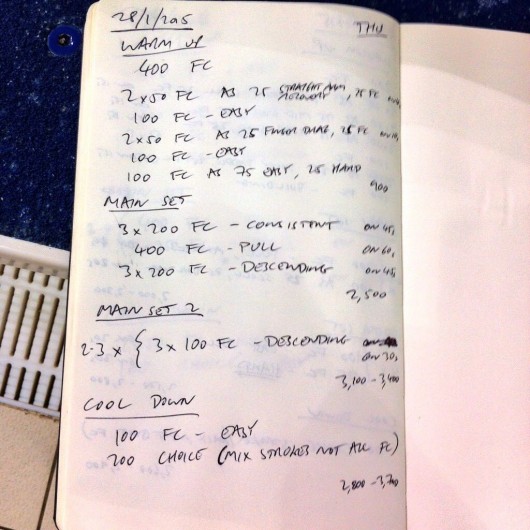 28/1/2015
THU
WARM UP
400 FC
2x50 FC AS 25 STRAIGHT ARM RECOVERY, 25 FC
100 FC - EASY
2x50 FC AS 25 FINGER DRAG, 25 FC
100 FC - EASY
100 FC AS 75 EASY, 25 HARD
900
MAIN SET
3 x 200 FC - CONSISTENT ON 45,
400 FC - PULL ON 60,
3 x 200 FC - DESCENDING ON 45,
2,500
MAIN SET 2
2-3 x { 3 x 100 FC - DESCENDING
ON 30,
3,100 - 3,400
COOL DOWN
100 FC - EASY
200 CHOICE (MIX STROKES NOT ALL FC)
2,800 - 3,700